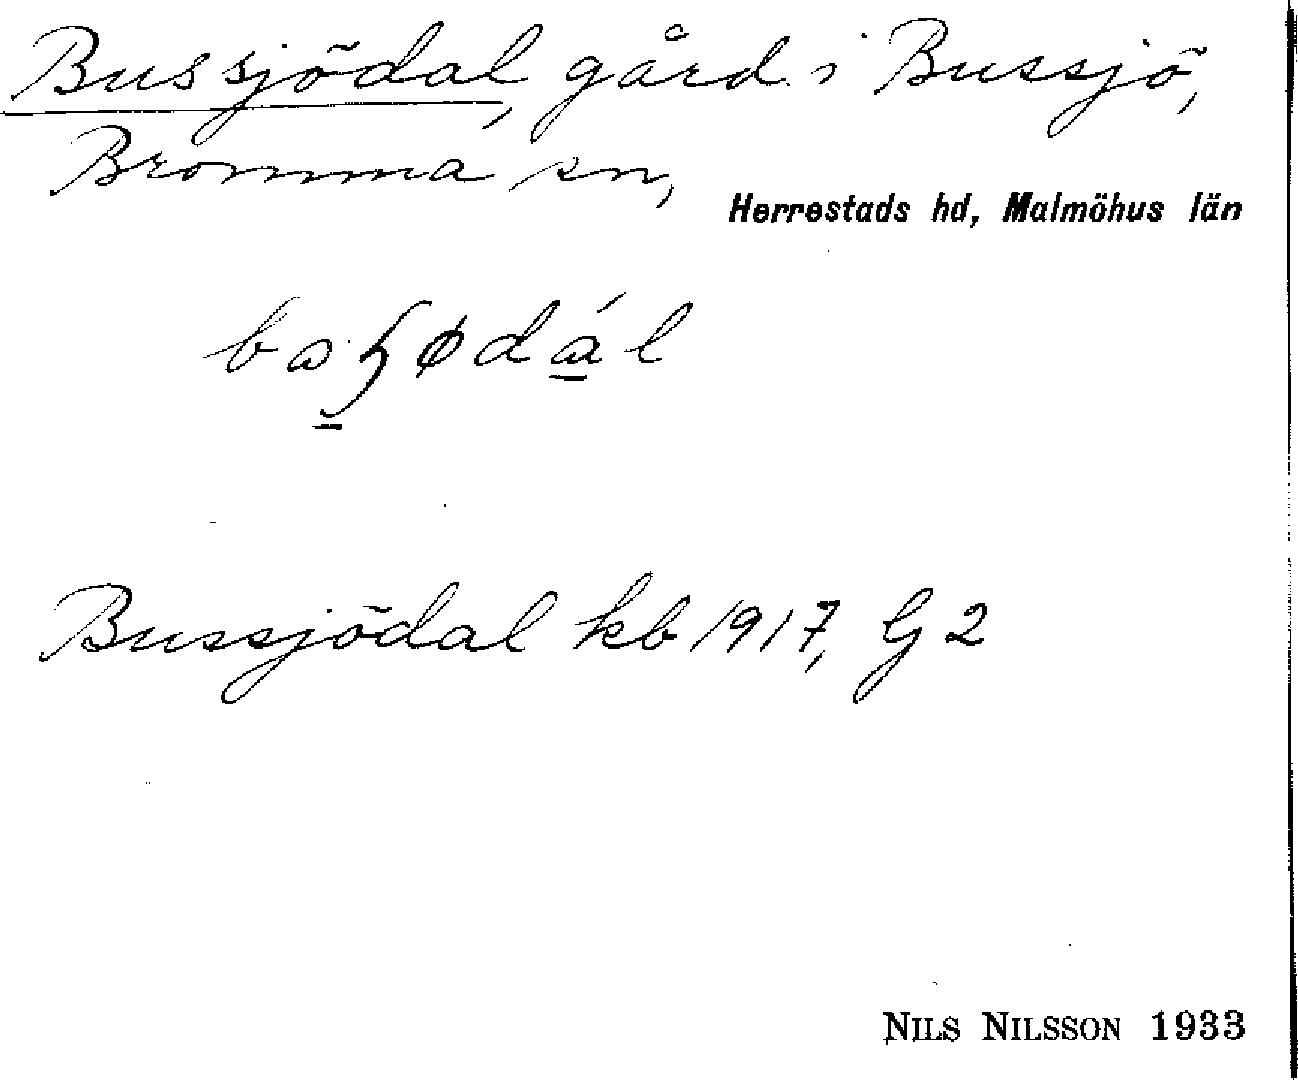 Bussjödal, gård i Bussjö,
Bromma sn,
Herrestads hd, Malmöhus län
Bussjödal kb 1917, G 2
NILS NILSSON 1933